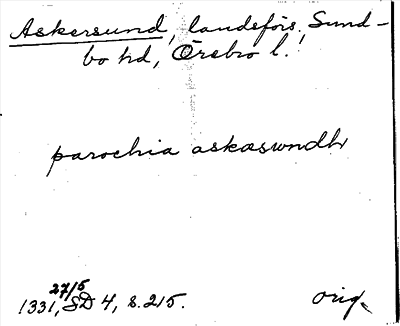 Askersund, landsförs. Sund-
bo hd, Örebro l.
parochia askæswndh
1331, 27/5 SD 4, s. 215. orig.